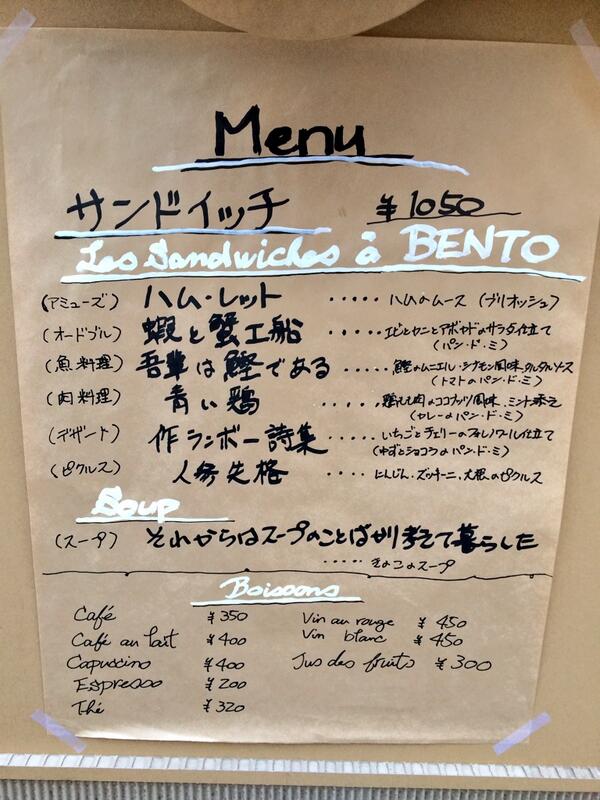 Menu
サンドイッチ ¥1050
Les Sandwiches à BENTO
(アミューズ) ハム・レット ・・・・・ ハムのムース (ブリオッシュ)
(オードブル) 蝦と蟹工船 ・・・・・ エビとカニとアボカドのサラダ仕立て
(パン・ド・ミ)
(魚料理) 吾輩は鰹である ・・・・・ 鰹のムニエル・シナモン風味、タルタルソース
(トマトのパン・ド・ミ)
(肉料理) 青い鶏 ・・・・ 鶏もも肉のココナッツ風味、ミント添え
(カレーのパン・ド・ミ)
(デザート) 作ランボー詩集 ・・・・ いちごとチェリーのフォレノワール仕立て
(ゆずとショコラのパン・ド・ミ)
(ピクルス) 人参失格 ・・・・ にんじん、ズッキーニ、大根のピクルス
Soup
(スープ) それからはスープのことばかり考えて暮らした
・・・・・ きのこのスープ
Boissons
Café ¥350
Café au lait ¥400
Capuccino ¥400
Espresso ¥200
Thé ¥320
Vin au rouge ¥450
Vin blanc ¥450
Jus des fruits ¥300